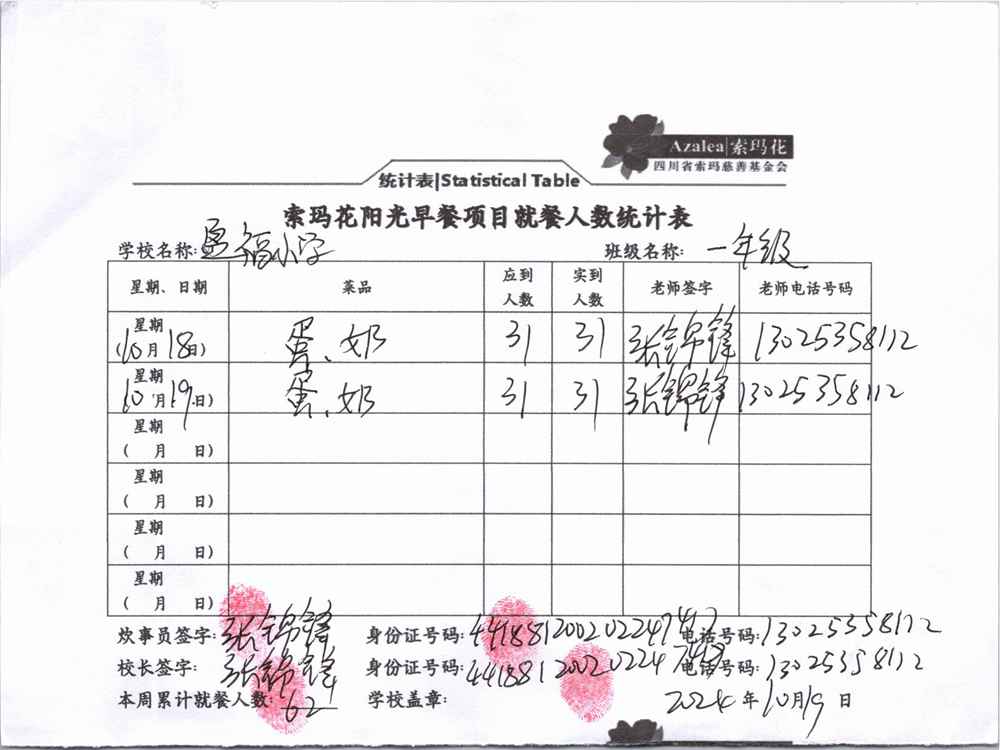 Azalea|索玛花
四川省索玛慈善基金会
统计表|Statistical Table
索玛花阳光早餐项目就餐人数统计表
学校名称: 福小学 班级名称: 一年级
星期、日期 菜品 应到人数 实到人数 老师签字 老师电话号码
星期 (10月18日) 蛋、奶 31 31 张锦锋 13025358112
星期 (10月19日) 蛋、奶 31 31 张锦锋 13025358112
星期 ( 月 日)
星期 ( 月 日)
星期 ( 月 日)
星期 ( 月 日)
炊事员签字: 张锦锋 身份证号码: 电话号码: 13025358112
校长签字: 张锦锋 身份证号码: 电话号码: 13025358112
本周累计就餐人数: 62 学校盖章: 2024年10月19日